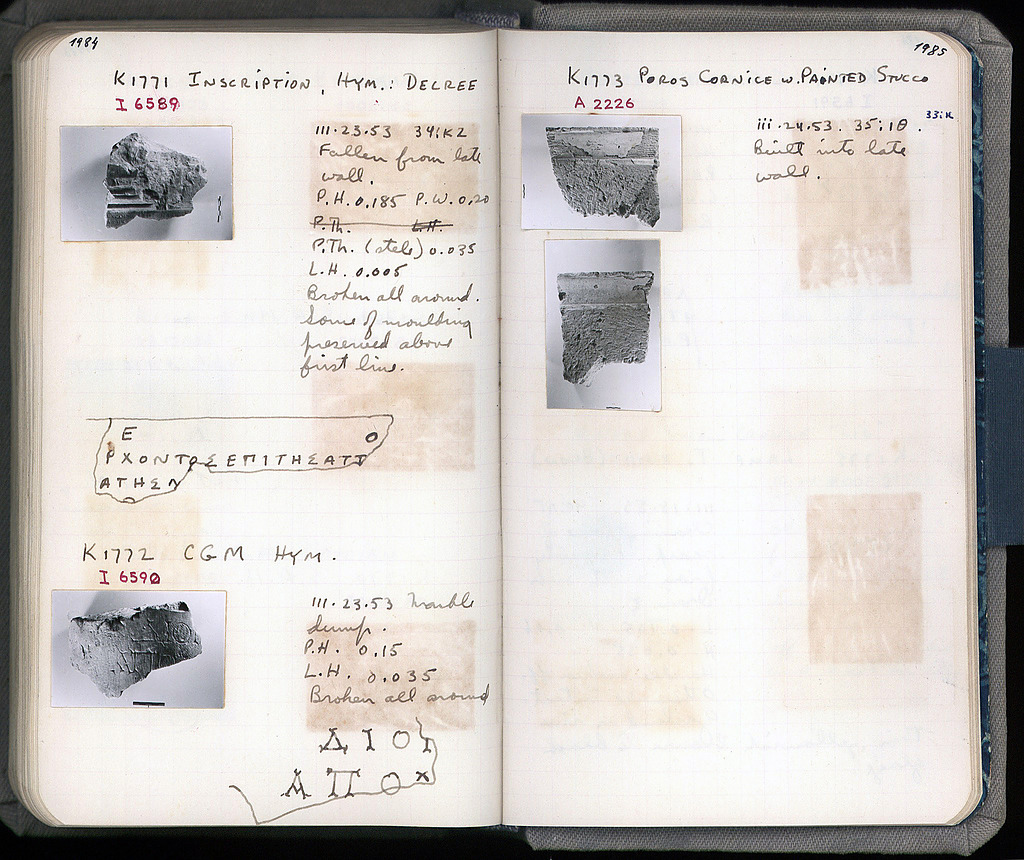 1984
K1771 INSCRIPTION, HYM.: DECREE
I 6589
III·23·53 34:K2
Fallen from late
wall.
P.H. 0.185 P.W. 0.20
P.Th. L.H.
P.Th. (stele) 0.035
L.H. 0.005
Broken all around.
Some of moulding
preserved above
first line.
Ε Ο
ΡΧΟΝΤΟΣΕΠΙΤΗΣΑΤΤ
ΑΤΗΕΝ
K1772 CGM HYM.
I 6590
III·23·53 Marble
dump.
P.H. 0.15
L.H. 0.035
Broken all around
Δ Ι Ο Ι
Α Π Ο Χ
1985
K1773 POROS CORNICE W. PAINTED STUCCO
A 2226
33:ΙΚ
iii·24·53. 35:ΙΘ.
Built into late
wall.